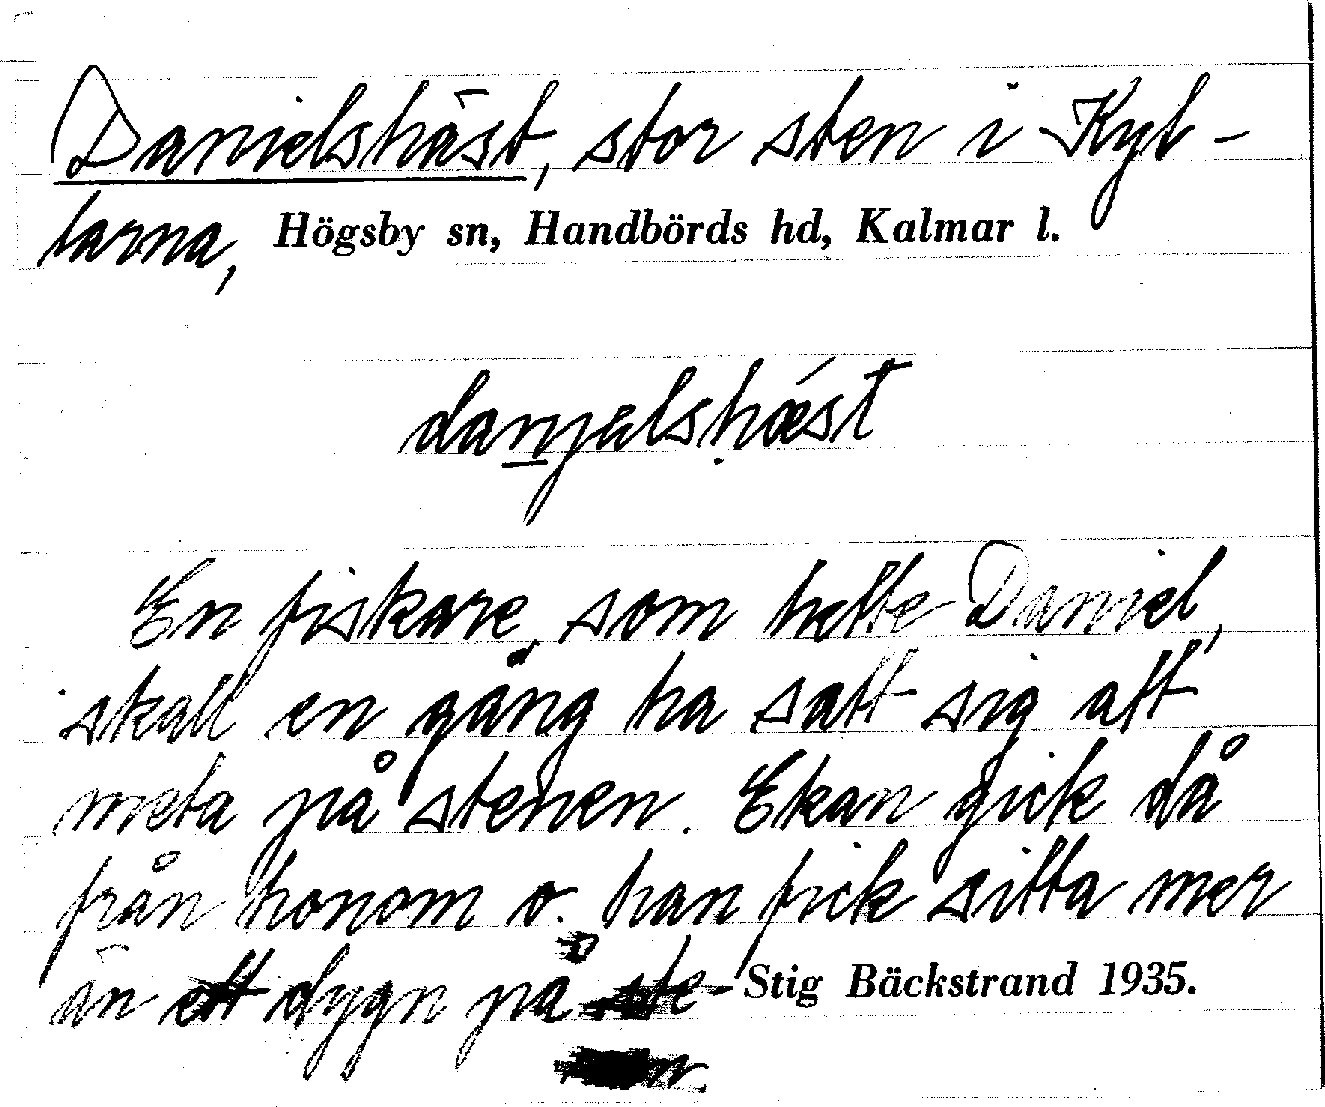 Danielshäst, stor sten i Kyt-
tarna, Högsby sn, Handbörds hd, Kalmar l.
danjælshǽst
En fiskare, som hette Daniel,
skall en gång ha satt sig att
meta på stenen. Ekan gick då
från honom o. han fick sitta mer
än ett dygn på ste- Stig Bäckstrand 1935.